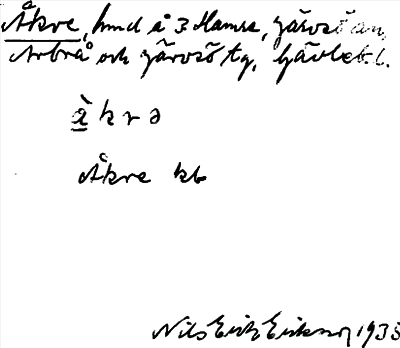 Åkre, hmd å 3 Hamra, Järvsö sn,
Arbrå och Järvsö tg, Gävleb. l.
å k r ə
Åkre kb
Nils Erik Eriksson 1935